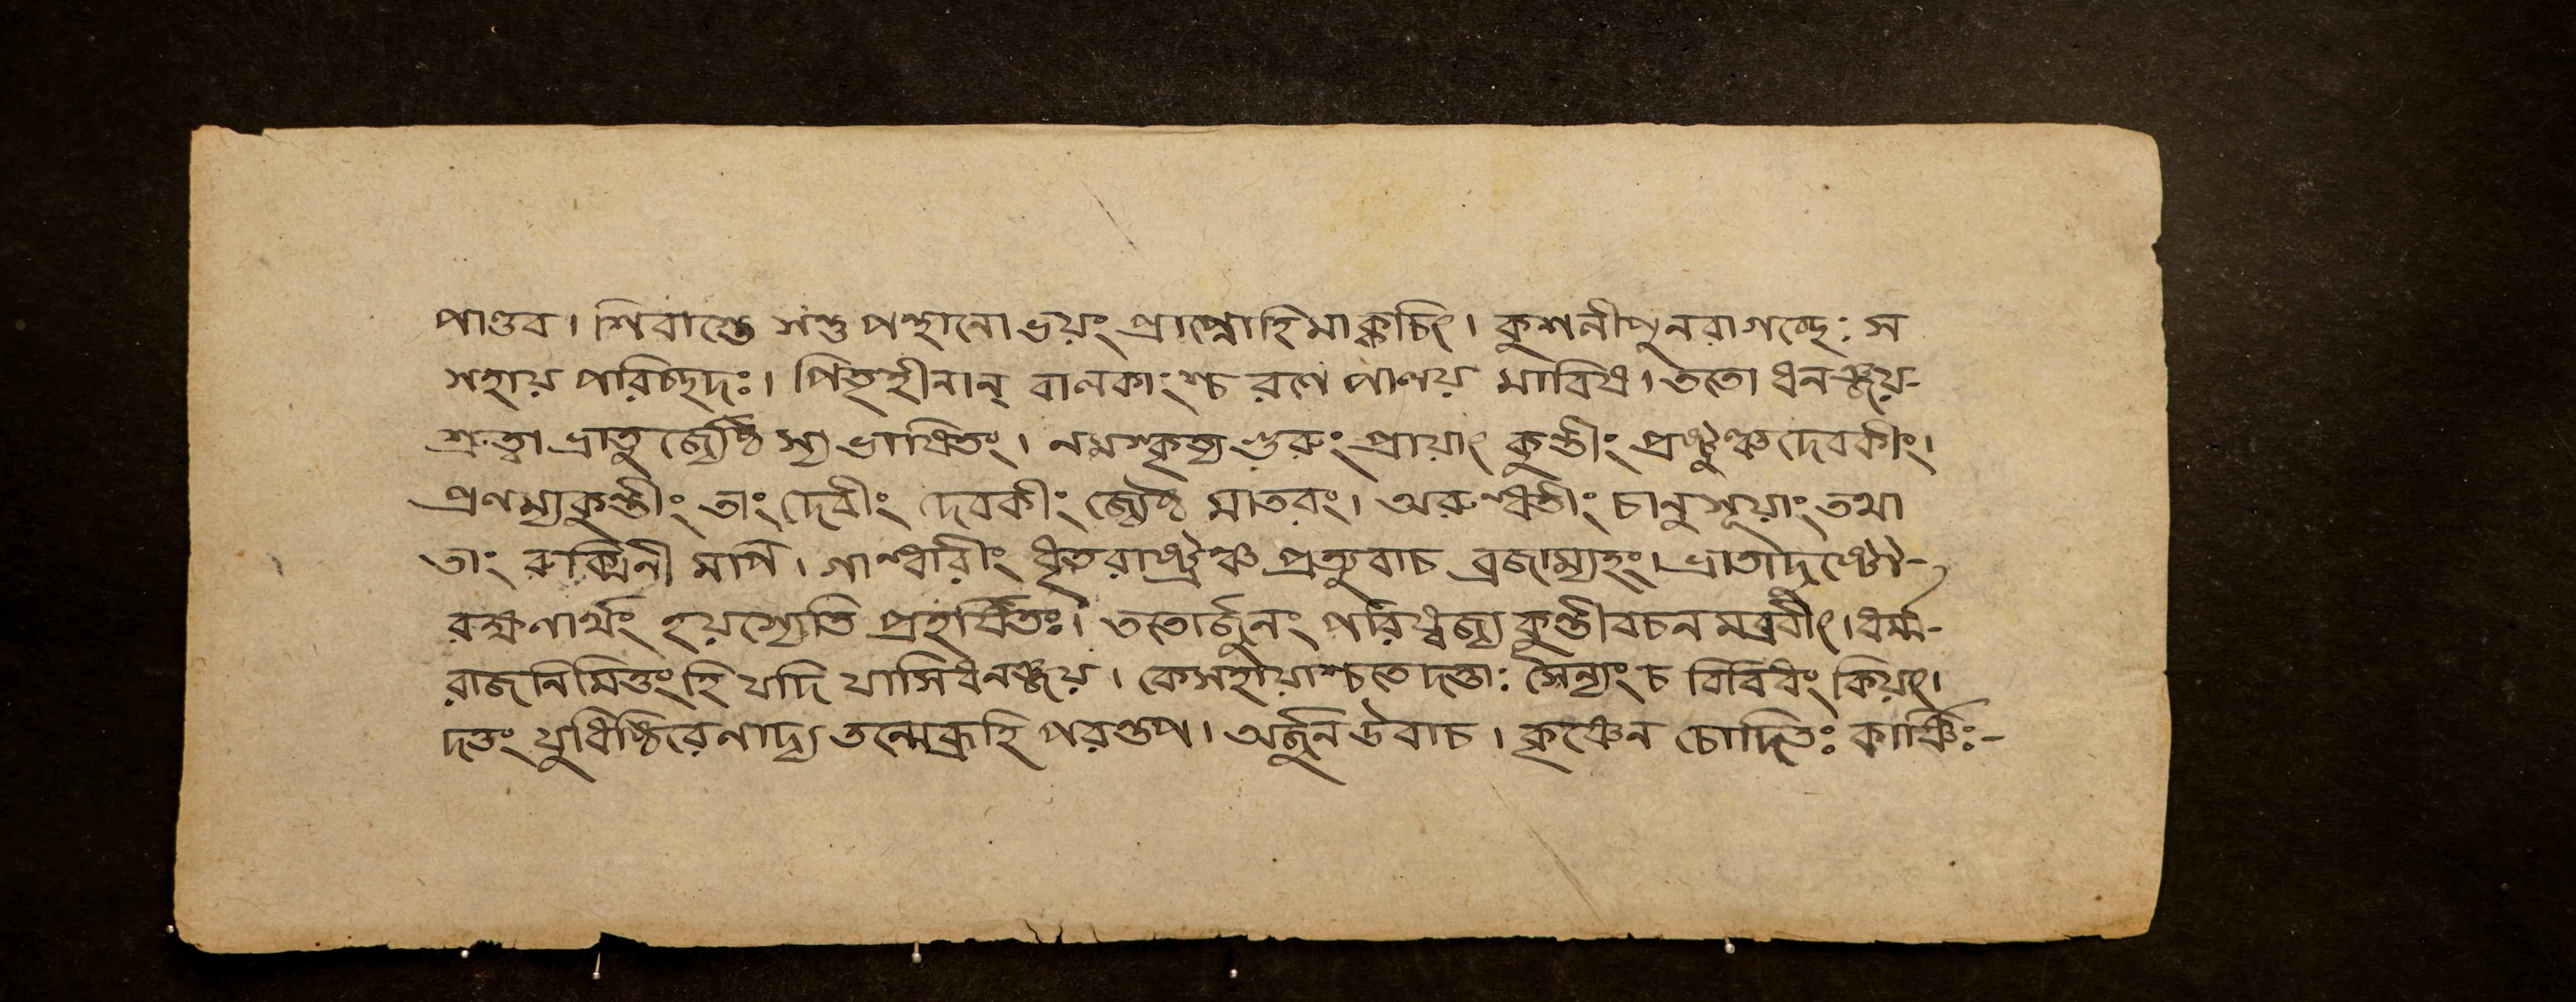 পাণ্ডব। শিবাস্তে সন্তু পন্থানো ভয়ং প্রাপ্নোহি মাক্কচিৎ। কুশলীপুনরাগচ্ছেঃ স
সহায় পরিচ্ছদঃ। পিতৃহীনান্ বালকাংশ্চ রণে পালয় মাবিধ। ততো ধনঞ্জয়-
শ্রুত্বা ভ্রাতু জ্যেষ্ঠ স্য ভাষিতং। নমস্কৃত্য গুরুং প্রায়াৎ কুন্তীং প্রষ্টুঞ্চ দেবকীং।
প্রণম্য কুন্তীং তাং দেবীং দেবকীং জ্যেষ্ঠ মাতরং। অরুন্ধতীং চানুসূয়াং তথা
তাং রুক্মিনী মপি। গান্ধারীং ধৃতরাষ্ট্রঞ্চ প্রত্যুবাচ ব্রজাম্যহং। ভ্রাতাদুষ্টো-
রক্ষণার্থং হয়স্যেতি প্রহর্ষিতঃ। ততোর্জুনং পরিষ্বজ্য কুন্তীবচন মব্রবীৎ। ধর্ম্ম-
রাজনিমিত্তংহি যদি যাসি ধনঞ্জয়। কেসহায়াশ্চতে দত্তাঃ সৈন্যং চ বিবিধং কিয়ৎ।
দত্তং যুধিষ্ঠিরেণাদ্য তন্মেব্রূহি পরন্তপ। অর্জুন উবাচ। কৃষ্ণেন চোদিতঃ কার্ষ্ণিঃ-